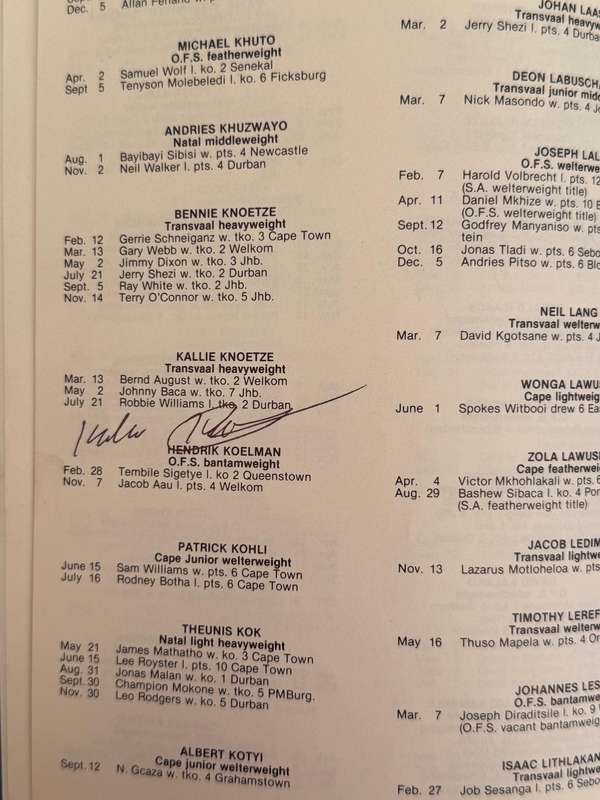 Dec. 5 Allan Ferland w. pts.
MICHAEL KHUTO
O.F.S. featherweight
Apr. 2 Samuel Wolf l. ko. 2 Senekal
Sept 5 Tenyson Molebeledi l. ko. 6 Ficksburg
ANDRIES KHUZWAYO
Natal middleweight
Aug. 1 Bayibayi Sibisi w. pts. 4 Newcastle
Nov. 2 Neil Walker l. pts. 4 Durban
BENNIE KNOETZE
Transvaal heavyweight
Feb. 12 Gerrie Schneiganz w. tko. 3 Cape Town
Mar. 13 Gary Webb w. tko. 2 Welkom
May 2 Jimmy Dixon w. tko. 3 Jhb.
July 21 Jerry Shezi w. tko. 2 Durban
Sept. 5 Ray White w. tko. 2 Jhb.
Nov. 14 Terry O'Connor w. tko. 5 Jhb.
KALLIE KNOETZE
Transvaal heavyweight
Mar. 13 Bernd August w. tko. 2 Welkom
May 2 Johnny Baca w. tko. 7 Jhb.
July 21 Robbie Williams l. tko. 2 Durban
HENDRIK KOELMAN
O.F.S. bantamweight
Feb. 28 Tembile Sigetye l. ko 2 Queenstown
Nov. 7 Jacob Aau l. pts. 4 Welkom
PATRICK KOHLI
Cape Junior welterweight
June 15 Sam Williams w. pts. 6 Cape Town
July 16 Rodney Botha l. pts. 6 Cape Town
THEUNIS KOK
Natal light heavyweight
May 21 James Mathatho w. ko. 3 Cape Town
June 15 Lee Royster l. pts. 10 Cape Town
Aug. 31 Jonas Malan w. ko. 1 Durban
Sept. 30 Champion Mokone w. tko. 5 PMBurg.
Nov. 30 Leo Rodgers w. ko. 5 Durban
ALBERT KOTYI
Cape junior welterweight
Sept. 12 N. Gcaza w. tko. 4 Grahamstown
JOHAN LAAS
Transvaal heavyw
Mar. 2 Jerry Shezi l. pts. 4 Durba
DEON LABUSCHA
Transvaal junior midd
Mar. 7 Nick Masondo w. pts. 4 J
JOSEPH LAL
O.F.S. welterwe
Feb. 7 Harold Volbrecht l. pts. 12
(S.A. welterweight title)
Apr. 11 Daniel Mkhize w. pts. 10 B
(O.F.S. welterweight title)
Sept. 12 Godfrey Manyaniso w. pts
tein
Oct. 16 Jonas Tladi w. pts. 6 Sebo
Dec. 5 Andries Pitso w. pts. 6 Blo
NEIL LANG
Transvaal welterw
Mar. 7 David Kgotsane w. pts. 4 J
WONGA LAWUS
Cape lightweig
June 1 Spokes Witbooi drew 6 Eas
ZOLA LAWUS
Cape featherwei
Apr. 4 Victor Mkhohlakali w. pts. 6
Aug. 29 Bashew Sibaca l. ko. 4 Por
(S.A. featherweight title)
JACOB LEDIM
Transvaal lightwe
Nov. 13 Lazarus Motloheloa w. pts
TIMOTHY LEREF
Transvaal welterw
May 16 Thuso Mapela w. pts. 4 Or
JOHANNES LES
O.F.S. bantamwe
Mar. 7 Joseph Diraditsile l. ko. 9
(O.F.S. vacant bantamweig
ISAAC LITHLAKAN
Transvaal lightwe
Feb. 27 Job Sesanga l. pts. 6 Sebo